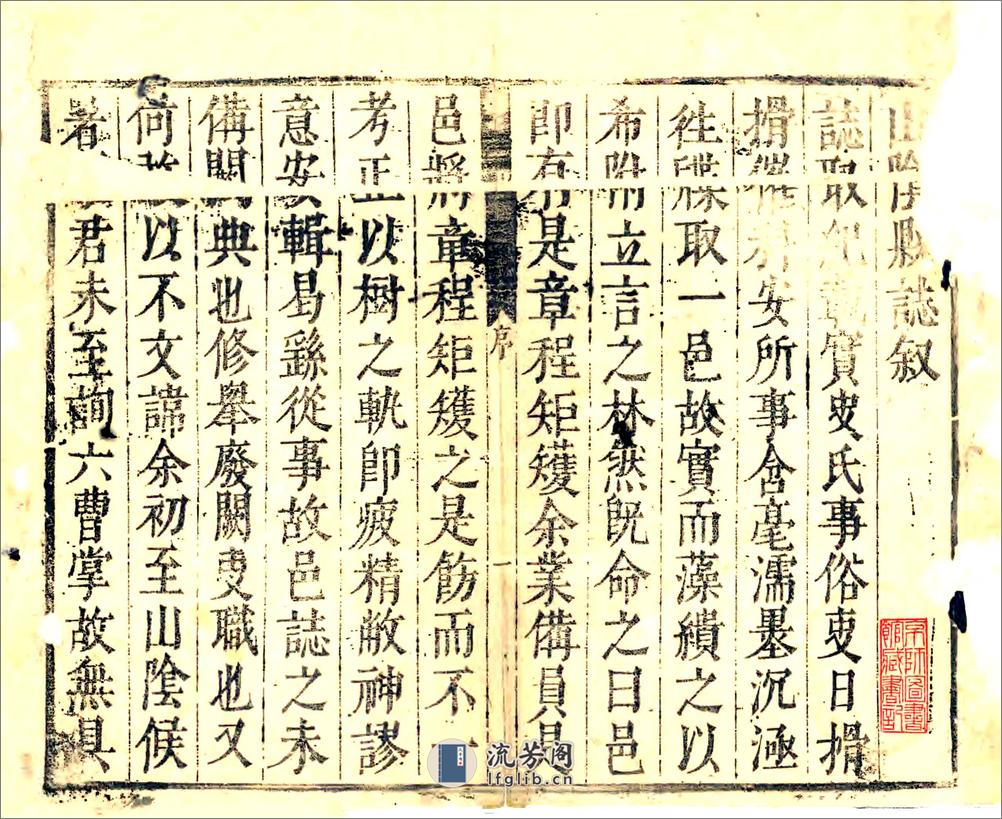 山陰縣誌叙
誌取紀載實史氏事俗吏日搰
搰安所事含毫濡墨沉
往牒取一邑故實而藻繢之以
希附立言之林然旣命之曰邑
即有是章程矩矱余業備員是
序
一
邑將章程矩矱之是飭而不
考正以樹之軌即疲精敝神謬
意安輯曷繇從事故邑誌之未
備闕典也修舉廢闕吏職也又
何敢以不文諱余初至山陰侯
者君未至詢六曹掌故無具
京師圖書
館藏書記
流芳阁
lfglib.cn